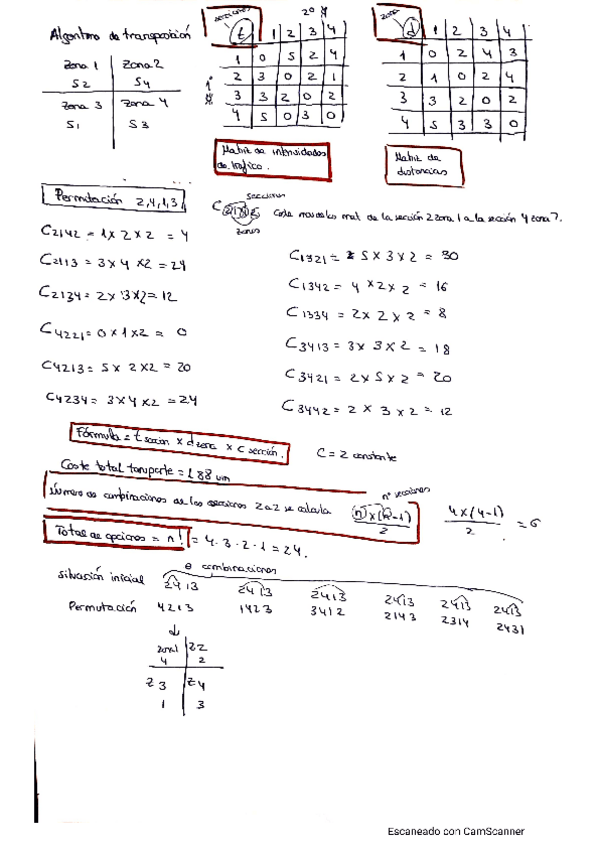 Algoritmo de transposición
zona 1 zona 2
S2 S4
zona 3 zona 4
S1 S3
secciones 2º
t 1 2 3 4
1 0 5 2 4
2 3 0 2 1
3 3 2 0 2
4 5 0 3 0
Matriz de intensidades
de tráfico.
zona
d 1 2 3 4
1 0 2 4 3
2 1 0 2 4
3 3 2 0 2
4 5 3 3 0
Matriz de
distancias
Permutación 2,4,1,3
secciones
zonas
de la sección 2 zona 1 a la sección 4 zona
C2142 = 1 x 2 x 2 = 4
C2113 = 3 x 4 x 2 = 24
C2134 = 2 x 3 x 2 = 12
C4221 = 0 x 1 x 2 = 0
C4213 = 5 x 2 x 2 = 20
C4234 = 3 x 4 x 2 = 24
C1321 = 5 x 3 x 2 = 30
C1342 = 4 x 2 x 2 = 16
C1334 = 2 x 2 x 2 = 8
C3413 = 3 x 3 x 2 = 18
C3421 = 2 x 5 x 2 = 20
C3442 = 2 x 3 x 2 = 12
Fórmula = t sección x d zona x c sección.
C = 2 constante
Coste total transporte = 188 um
nº secciones
Número de combinaciones de las secciones 2 a 2 se calcula (n) x (n-1) / 2
4 x (4-1) / 2 = 6
Total de opciones = n! = 4 . 3 . 2 . 1 = 24.
combinaciones
Situación inicial 2413 2413 2413 2413 2413 2413
Permutación 4213 1423 3412 2143 2314 2431
zona 1 Z2
4 2
Z3 Z4
1 3
Escaneado con CamScanner